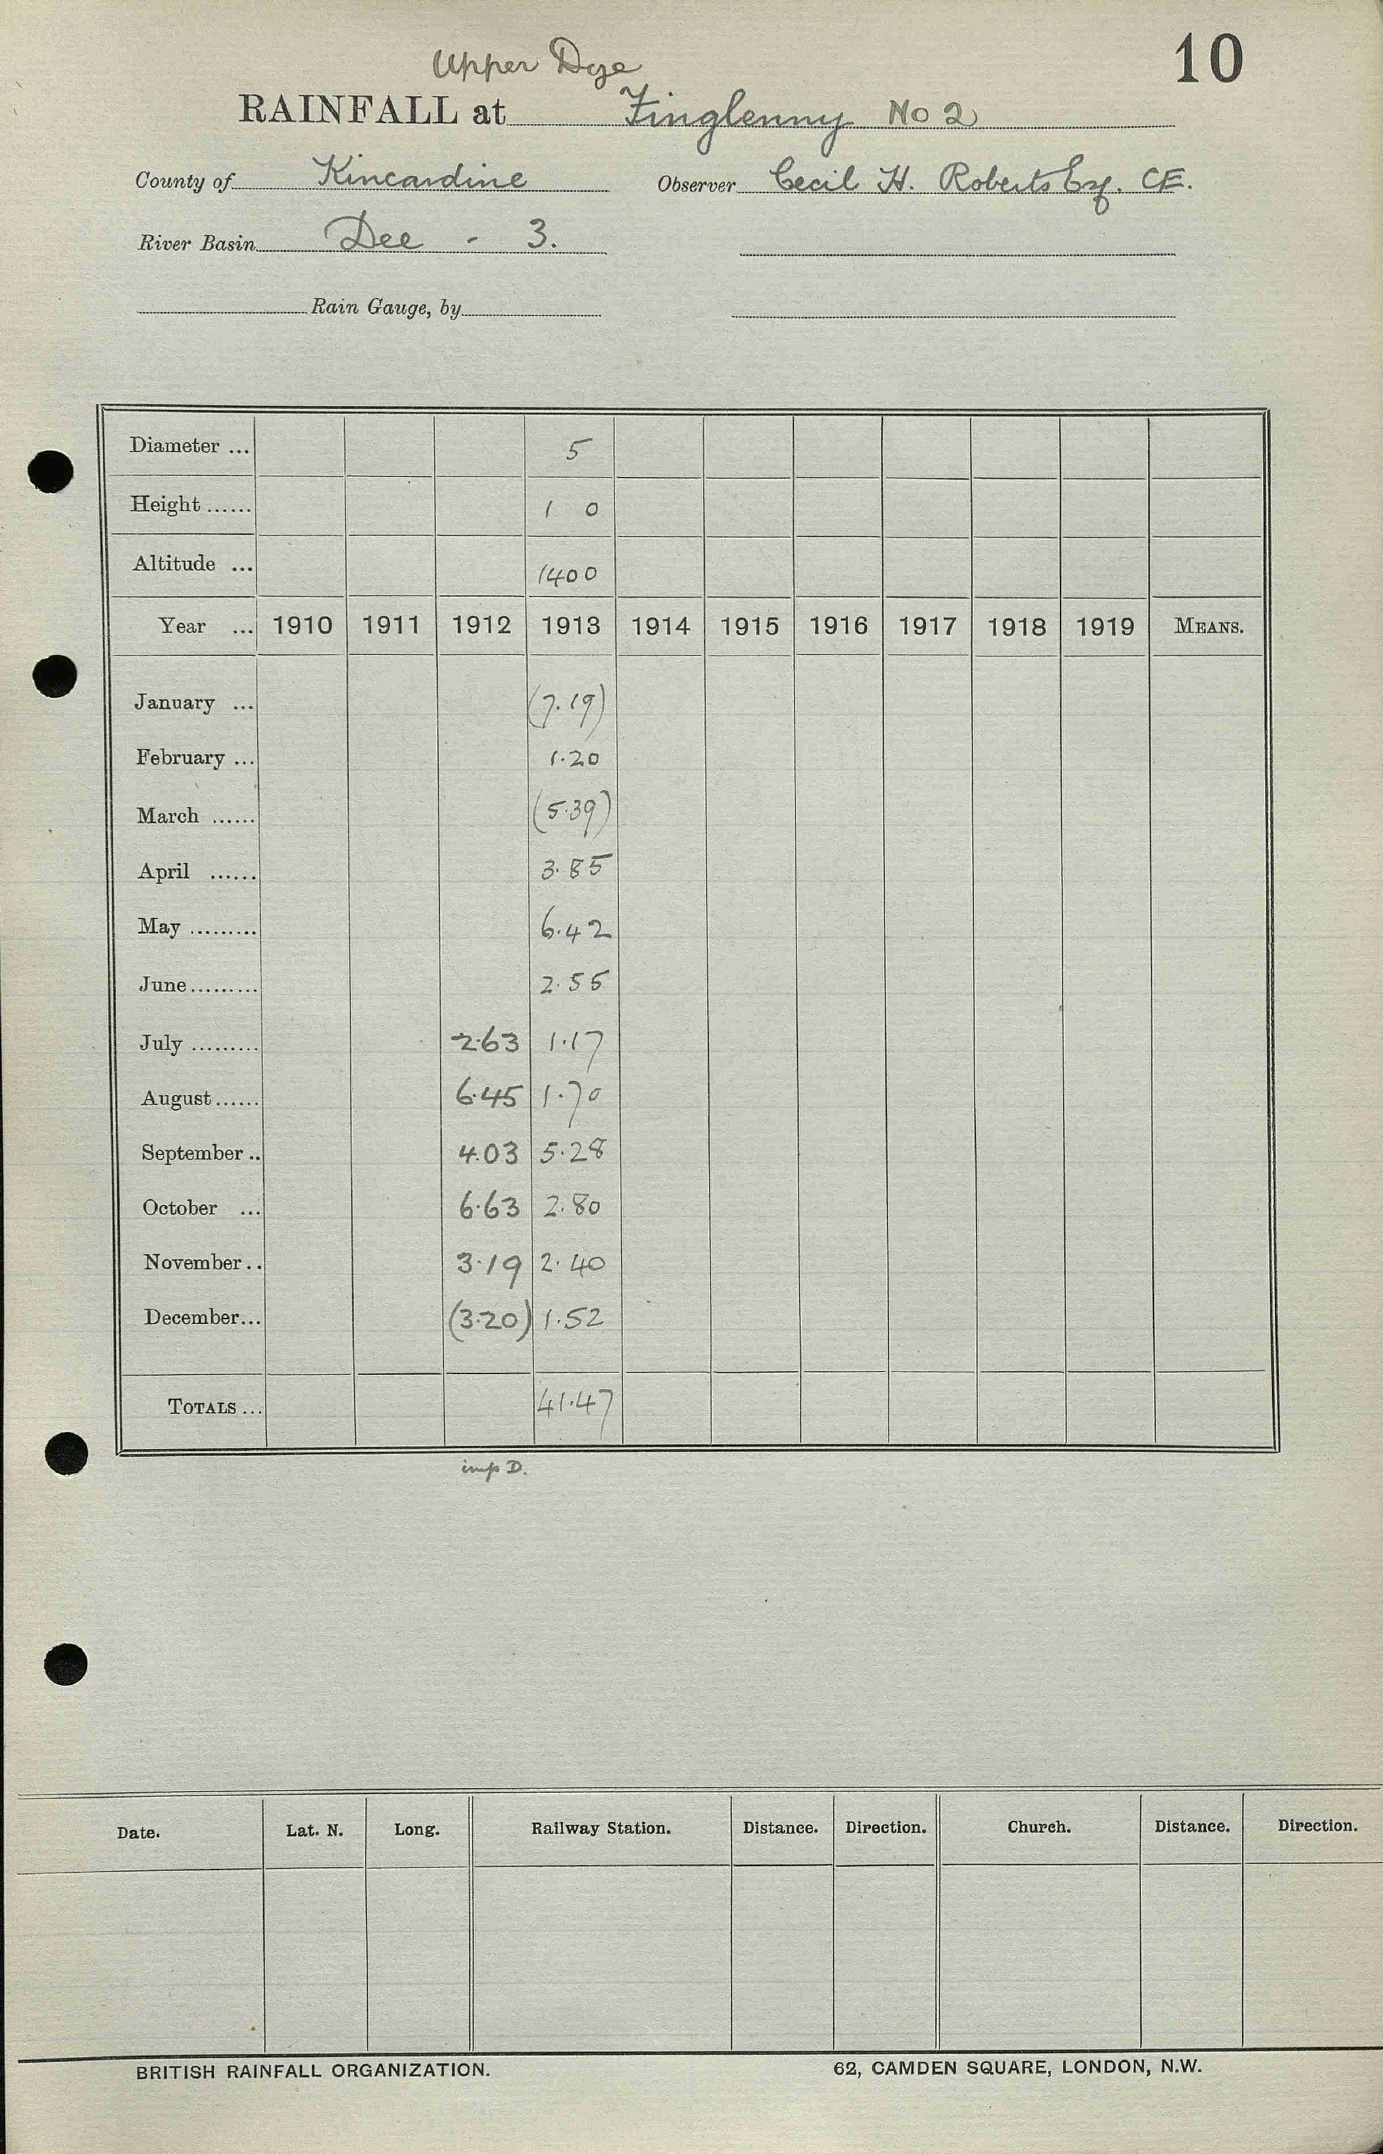 10
Upper Dye
RAINFALL at Finglenny No 2
County of Kincardine Observer Cecil H. Roberts Esq. CE.
River Basin Dee - 3.
Rain Gauge, by
Diameter ... 5
Height ...... 1 0
Altitude ... 1400
Year ... 1910 1911 1912 1913 1914 1915 1916 1917 1918 1919 MEANS.
January ... (7.19)
February ... 1.20
March ...... (5.39)
April ...... 3.85
May ......... 6.42
June ......... 2.55
July ......... 2.63 1.17
August ...... 6.45 1.70
September .. 4.03 5.28
October ... 6.63 2.80
November .. 3.19 2.40
December ... (3.20) 1.52
TOTALS ... 41.47
imp D.
Date. Lat. N. Long. Railway Station. Distance. Direction. Church. Distance. Direction.
BRITISH RAINFALL ORGANIZATION. 62, CAMDEN SQUARE, LONDON, N.W.